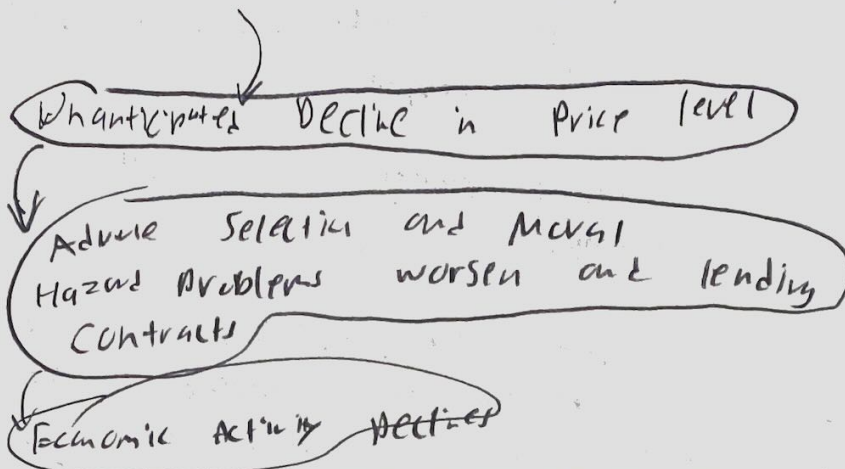 Unanticipated Decline in Price level
Adverse Selection and Moral
Hazard Problems worsen and lending
Contracts
Economic Activity Declines